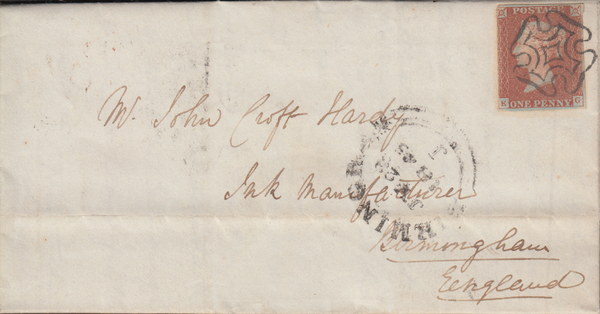 POSTAGE
ONE PENNY
Mr. John Croft Hardy
Ink Manufacturer
Birmingham
England